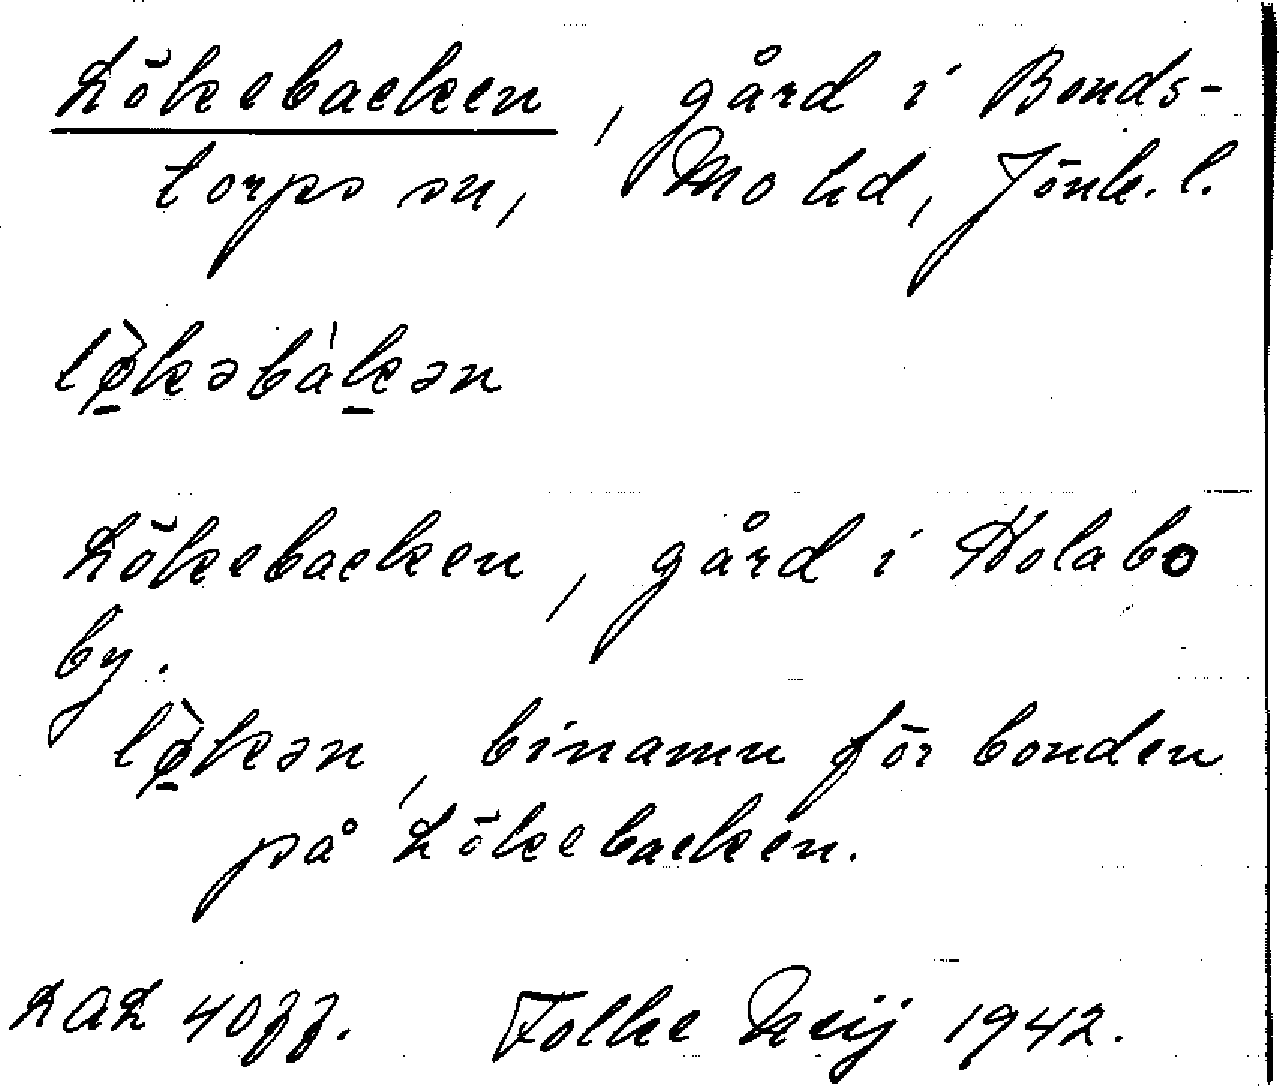 Lökebacken, gård i Bonds-
torps sn, Mo hd, Jönk. l.
lø̀kəbàkən
Lökebacken, gård i Holabo
by.
lø̀kən, binamn för bonden
på Lökebacken.
LAL 4077. Folke Neij 1942.